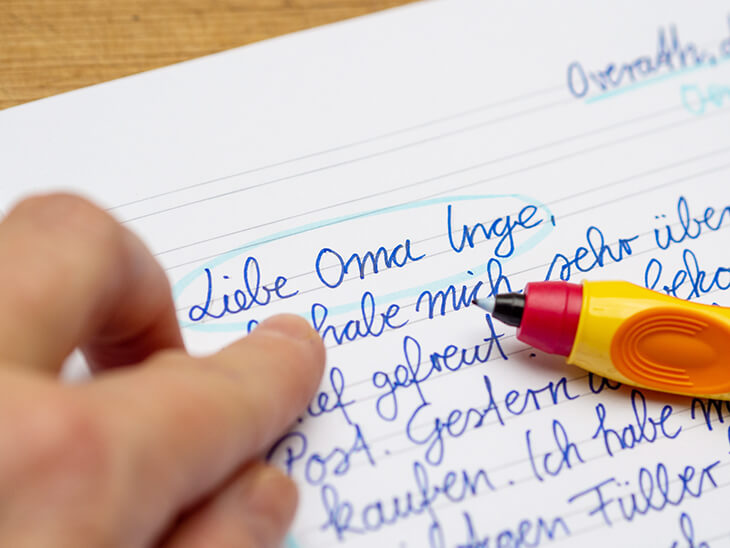 Overath, d
Liebe Oma Inge,
habe mich sehr über
ief gefreut. beko
Post. Gestern
kaufen. Ich habe m
tigen Füller